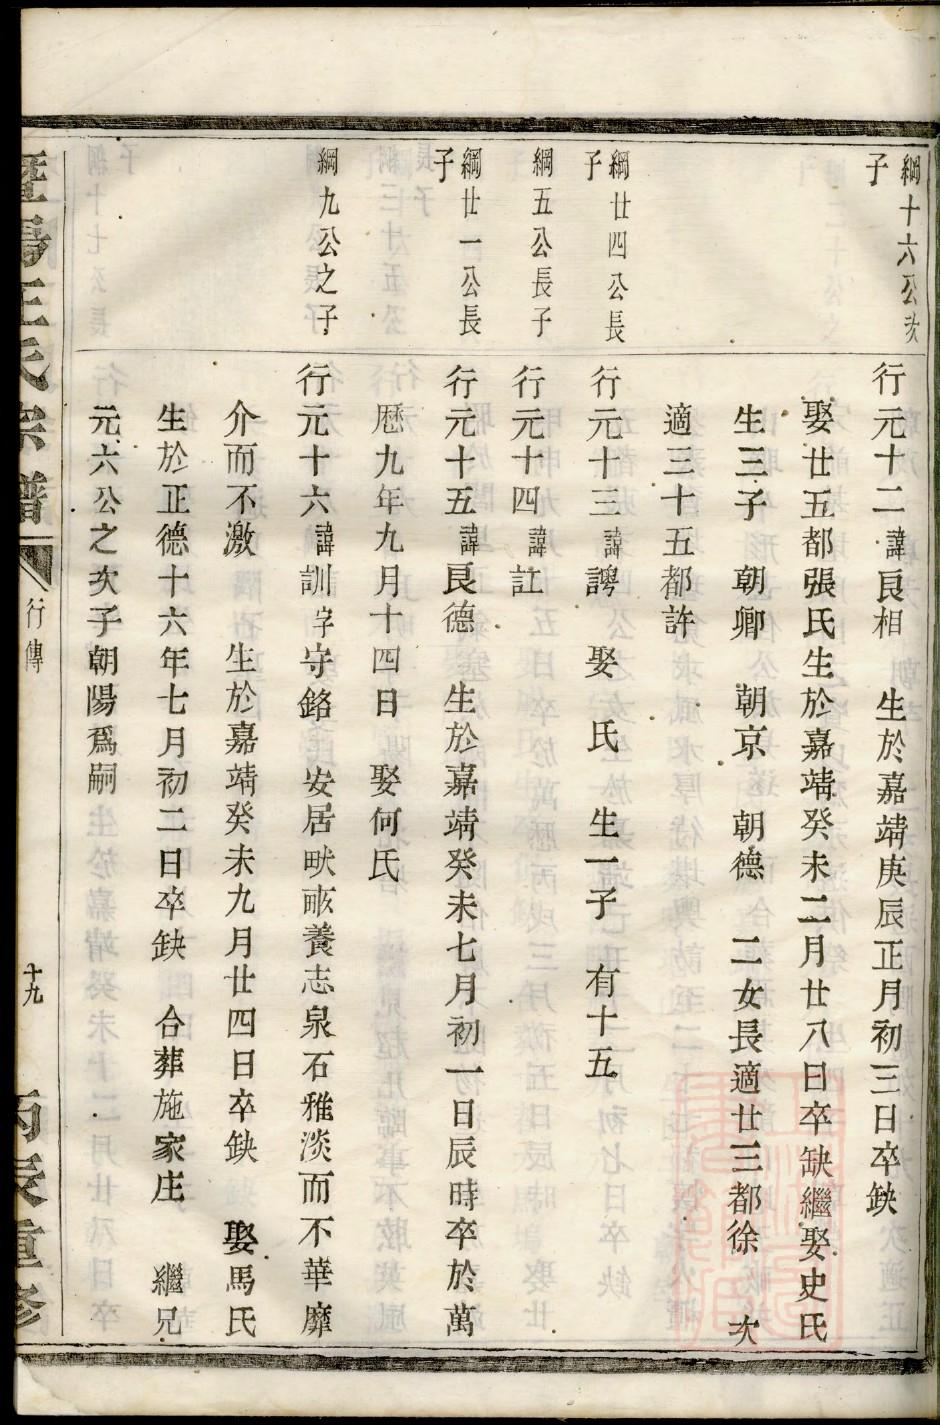 綱十六公次
子
行元十二諱良相 生於嘉靖庚辰正月初三日卒缺
娶廿五都張氏生於嘉靖癸未二月廿八日卒缺繼娶史氏
生三子 朝卿 朝京 朝德 二女長適廿三都徐 次
適三十五都許
綱廿四公長
子
行元十三諱謗 娶 氏 生一子 有十五
綱五公長子
行元十四諱註
綱廿一公長
子
行元十五諱良德 生於嘉靖癸未七月初一日辰時卒於萬
曆九年九月十四日 娶何氏
綱九公之子
行元十六諱訓字守銘 安居畎畝養志泉石雅淡而不華靡
介而不激 生於嘉靖癸未九月廿四日卒缺 娶馬氏
生於正德十六年七月初二日卒缺 合葬施家庄 繼兄
元六公之次子朝陽爲嗣
暨陽王氏宗譜
行傳
十九
丙辰重修